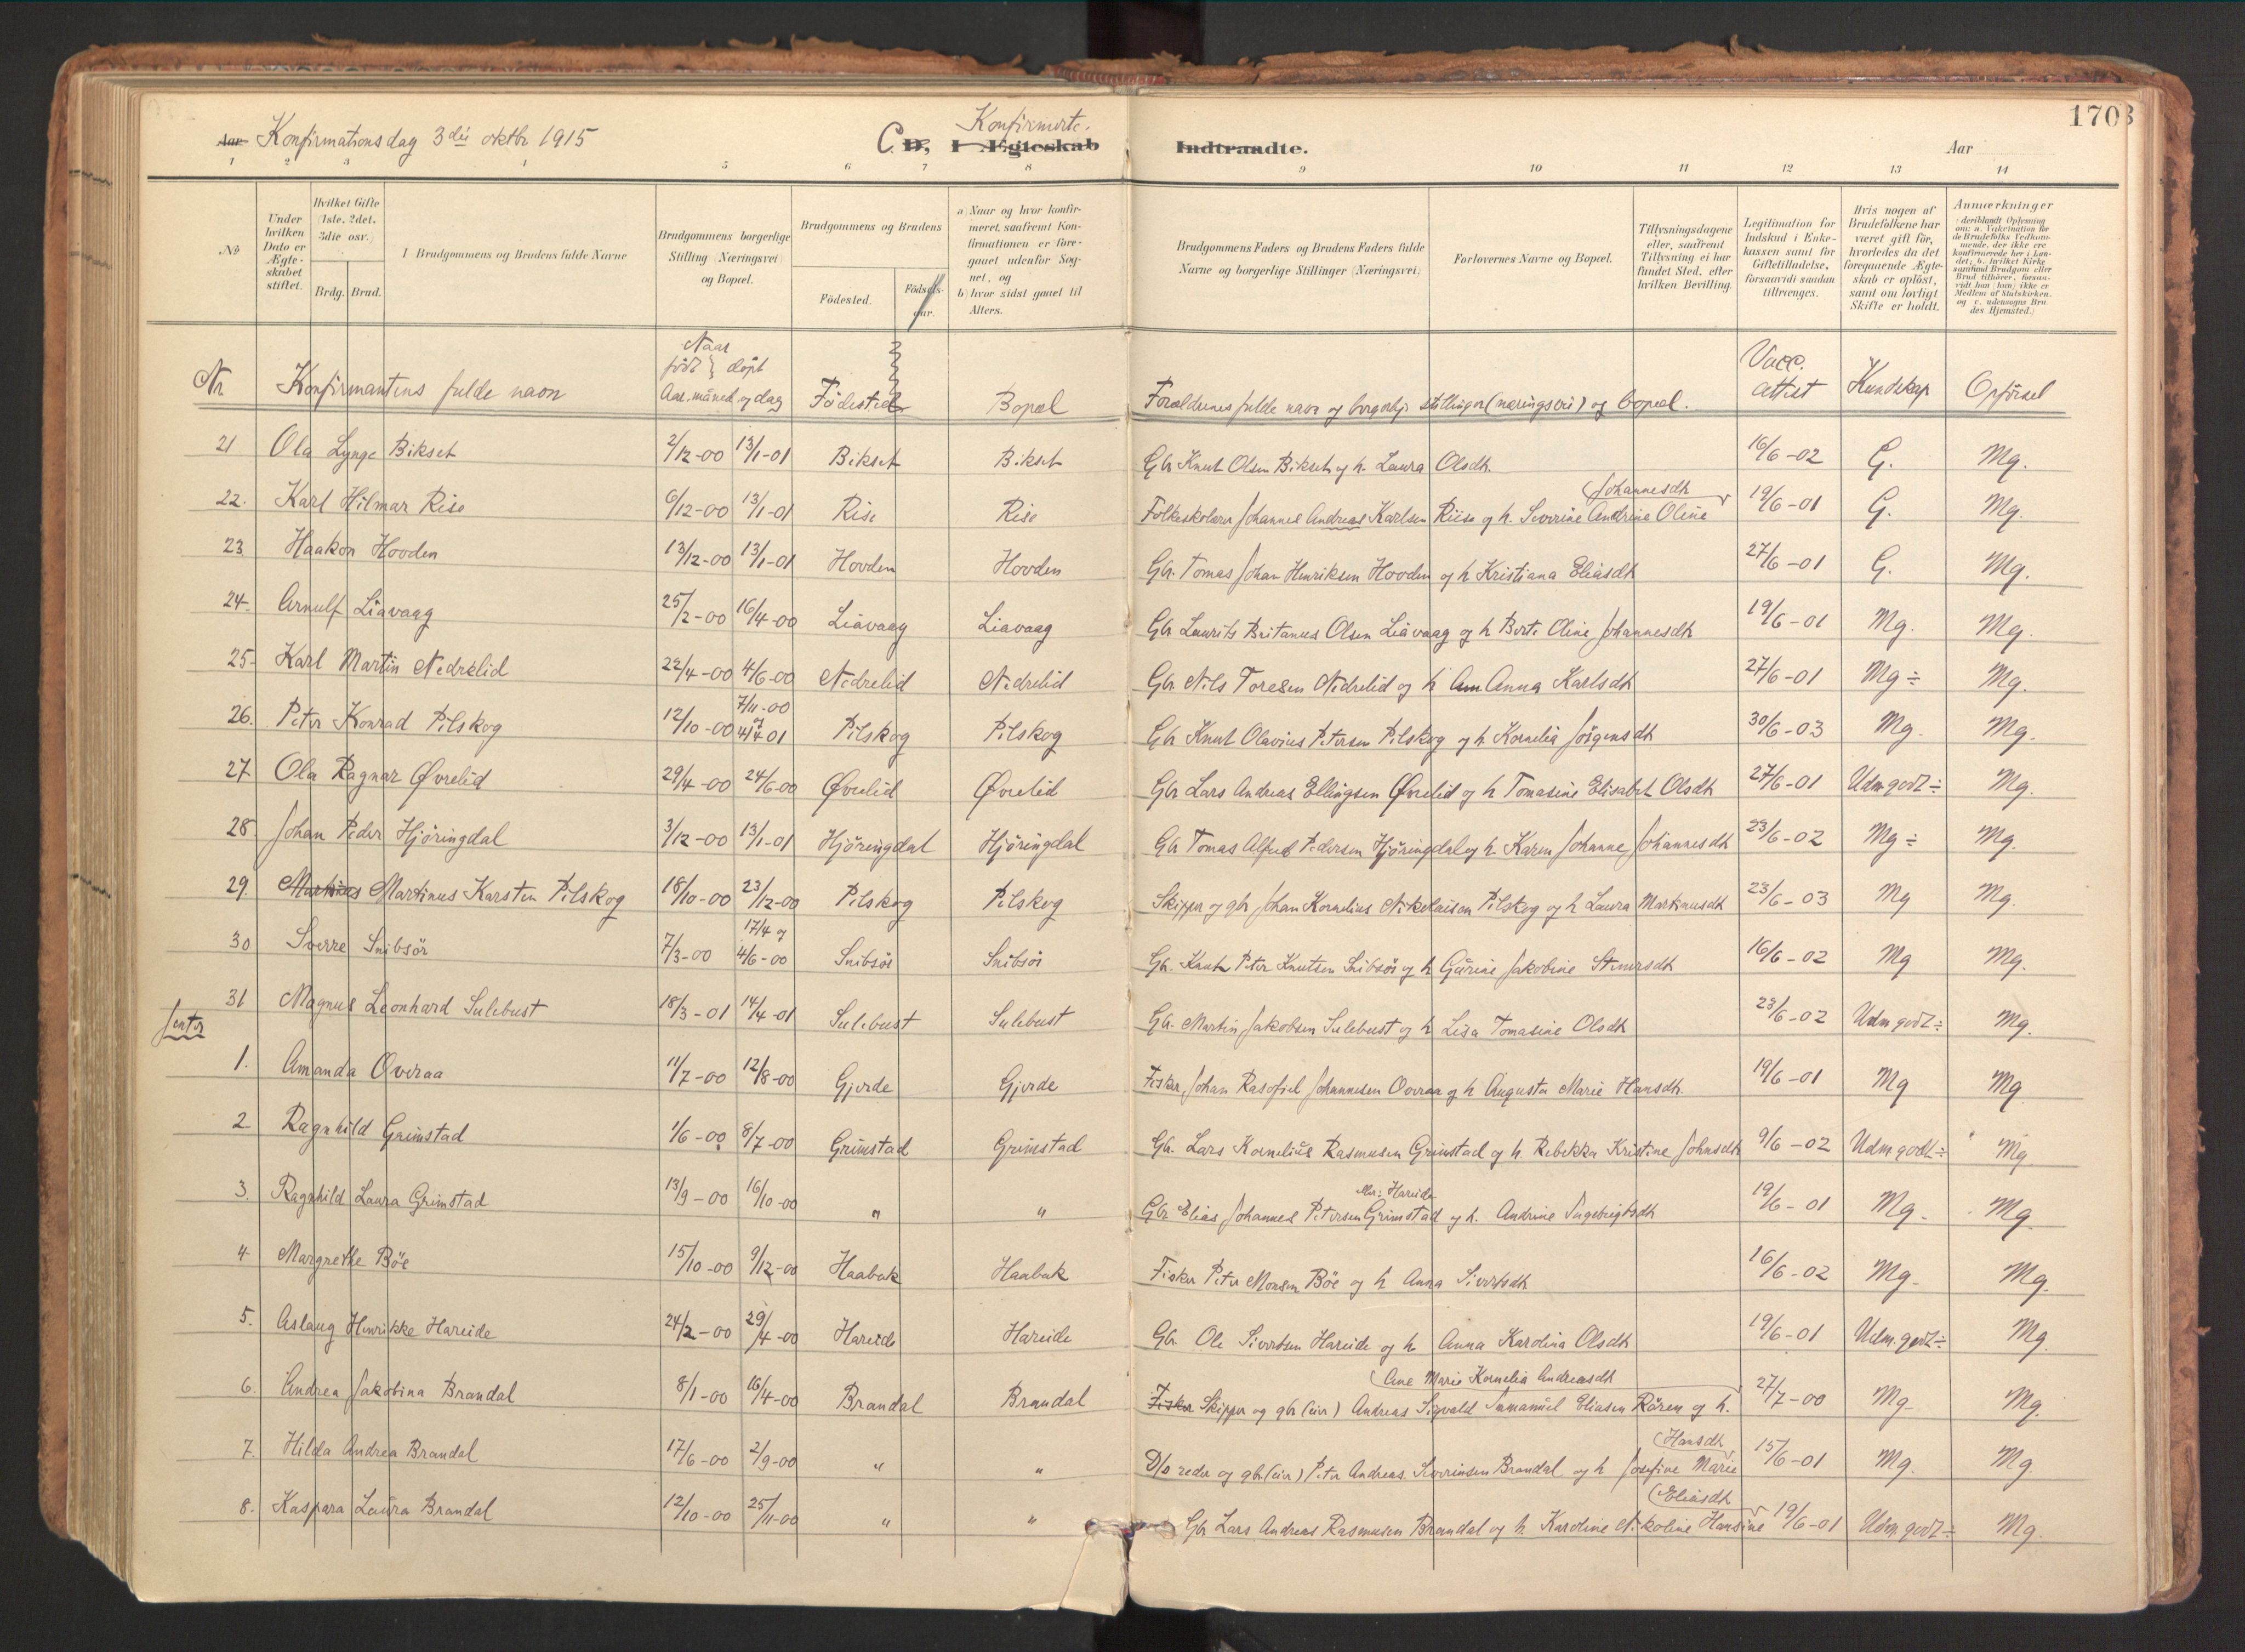 Aar Konfirmationsdag 3die oktbr 1915
Konfirmerte.
C. D, I Ægteskab Indtraadte.
Aar
1703
1 2 3 4 5 6 7 8 9 10 11 12 13 14
No
Under hvilken Dato er Ægteskabet stiftet.
Hvilket Gifte (1ste, 2det, 3die osv.)
Brdg. Brud.
I Brudgommens og Brudens fulde Navne
Brudgommens borgerlige Stilling (Næringsvei) og Bopæl.
Brudgommens og Brudens
Födested.
Födsels-aar.
a) Naar og hvor konfirmeret, saafremt Konfirmationen er foregaaet udenfor Sognet, og
b) hvor sidst gaaet til Alters.
Brudgommens Faders og Brudens Faders fulde Navne og borgerlige Stillinger (Næringsvei)
Forlovernes Navne og Bopæl.
Tillysningsdagene eller, saafremt Tillysning ei har fundet Sted, efter hvilken Bevilling.
Legitimation for Indskud i Enkekassen samt for Giftetilladelse, forsaavidt saadan tiltrænges.
Hvis nogen af Brudefolkene har været gift før, hvorledes da det foregaaende Ægteskab er opløst, samt om lovligt Skifte er holdt.
Anmærkninger (deriblandt Oplysning om: a. Vakcination for de Brudefolks Vedkommende, der ikke ere konfirmerede her i Landet; b. hvilket Kirkesamfund Brudgom eller Brud tilhører, forsaavidt han (hun) ikke er Medlem af Statskirken, og c. udensogns Brudes Hjemsted.)
Nr. Konfirmantens fulde navn Naar født } döpt Aar, måned og dag Födested Bopæl Forældrenes fulde navn og borgerlige stillinger (næringsvei) og bopæl. Vacc. attest Kundskap Opförsel
21 Ola Lynge Bikset 2/12-00 13/1-01 Bikset Bikset Gbr Knut Olsen Bikset og h. Laura Olsdh. 16/6-02 G. Mg.
(Johannesdh
22. Karl Hilmar Rise 6/12-00 13/1-01 Rise Rise Folkeskolærer Johannes Andreas Karlsen Riise og h. Severine Andrine Oline 19/6-01 G. Mg.
23 Haakon Hovden 13/12-00 13/1-01 Hovden Hovden Gbr. Tomas Johan Henriksen Hovden og h Kristiana Eliasdh 27/6-01 G. Mg.
24. Arnulf Liavaag 25/2-00 16/4-00 Liavaag Liavaag Gbr Laurits Britanus Olsen Liavaag og h Berte Oline Johannesdh 19/6-01 Mg. Mg.
25. Karl Martin Nedrelid 22/4-00 4/6-00 Nedrelid Nedrelid Gbr Nils Toresen Nedrelid og h Am Anna Karlsdh 27/6-01 Mg ÷ Mg.
26. Peter Konrad Pilskog 12/10-00 7/11-00 og 4/4-01 Pilskog Pilskog Gbr Knut Olavius Petersen Pilskog og h. Kornelia Jörgensdh 30/6-03 Mg. Mg.
27 Ola Ragnar Øvrelid 29/4-00 24/6-00 Øvrelid Øvrelid Gbr Lars Andreas Ellingsen Øvrelid og h Tomasine Elisabet Olsdh 27/6-01 Udm godt ÷ Mg.
28. Johan Peder Hjöringdal 3/12-00 13/1-01 Hjöringdal Hjöringdal Gbr Tomas Alfred Pedersen Hjöringdal og h. Karen Johanne Johannesdh 23/6-02 Mg ÷ Mg.
29. Martinus Martinus Karsten Pilskog 18/10-00 23/12-00 Pilskog Pilskog Skipper og gbr Johan Kornelius Nikolaisen Pilskog og h Laura Martinusdh 23/6-03 Mg Mg.
30 Sverre Snibsör 7/3-00 17/4 og 4/6-00 Snibsör Snibsör Gbr. Knut Peter Knutsen Snibsör og h Gurine Jakobine Steinersdh 16/6-02 Mg Mg.
31 Magnus Leonhard Sulebust 18/3-01 14/4-01 Sulebust Sulebust Gbr. Martin Jakobsen Sulebust og h Lisa Tomasine Olsdh 23/6-02 Udm godt ÷ Mg.
Jenter
1. Amanda Overaa 11/7-00 12/8-00 Gjerde Gjerde Fisker Johan Rasofiel Johannesen Overaa og h Augusta Marie Hansdh. 19/6-01 Mg Mg
2 Ragnhild Grimstad 1/6-00 8/7-00 Grimstad Grimstad Gbr. Lars Kornelius Rasmusen Grimstad og h. Rebekka Kristine Johnsdh 9/6-02 Udm godt ÷ Mg
3. Ragnhild Laura Grimstad 13/9-00 16/10-00 " " Gbr Elias Johannes Petersen Grimstad og h. Andrine Ingebrigtsdh 19/6-01 Mg. Mg.
4. Margrethe Böe 15/10-00 9/12-00 Haabak Haabak Fisker Peter Monsen Böe og h Anna Sivertsdh 16/6-02 Mg. Mg.
5. Aslaug Henrikke Hareide 24/2-00 29/4-00 Hareide Hareide Gbr. Ole Sivertsen Hareide og h Anna Karolina Olsdh 19/6-01 Udm. godt ÷ Mg.
(Ane Marie Kornelia Andreasdh
6. Andrea Jakobina Brandal 8/1-00 16/4-00 Brandal Brandal Fisker Skipper og gbr (eier) Andreas Sigvald Immanuel Eliasen Rören og h. 27/7-00 Mg. Mg.
(Hansdh
7. Hilda Andrea Brandal 17/6-00 2/9-00 " " D/s reder og gbr (eier) Peter Andreas Severinsen Brandal og h Josefine Marie 15/6-01 Mg. Mg.
(Eliasdh
8. Kaspara Laura Brandal 12/10-00 25/11-00 " " Gbr Lars Andreas Rasmusen Brandal og h. Karoline Nikoline Hansine 19/6-01 Udm godt ÷ Mg.